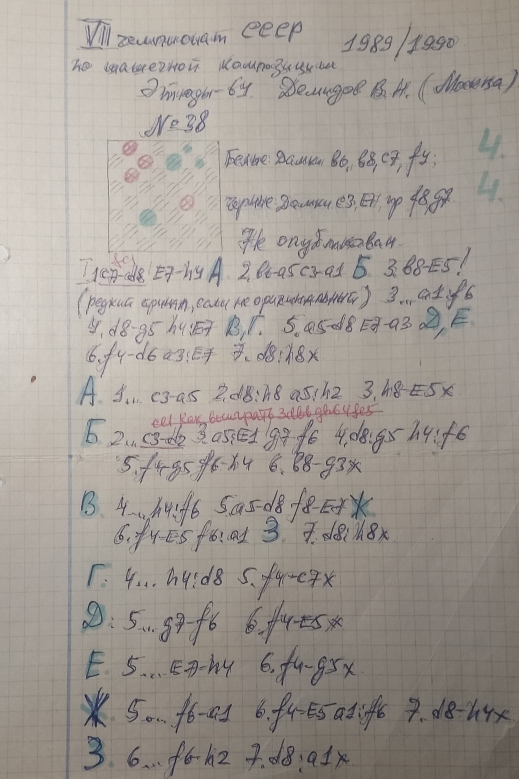 VII чемпионат СССР 1989/1990
по шашечной композиции
Этюды-64 Демидов В.Н. (Москва)
№38
Белые: Дамки b6, b8, c7, f4; 4
Черные: Дамки c3, E7, пр f8, g7 4
Не опубликован.
I 1.c7-d8 E7-h4 А 2.b6-a5 c3-a1 Б 3.b8-E5!
(редкий финал, если не оригинальный) 3...a1:f6
4.d8-g5 h4:E7 В,Г. 5.a5-d8 E7-a3 Д,Е.
6.f4-d6 a3:E7 7.d8:h8x
А. 1... c3-a5 2.d8:h8 a5:h2 3.h8-E5x
как выиграть
Б 2... c3-d2 3.a5:E1 g7-f6 4.d8:g5 h4:f6
5.f4-g5 f6-h4 6.b8-g3x
В. 4...h4:f6 5.a5-d8 f8-E7 Ж
6.f4-E5 f6:a1 З. 7.d8:h8x
Г: 4... h4:d8 5.f4-c7x
Д: 5...g7-f6 6.f4-E5x
Е 5...E7-h4 6.f4-g3x
Ж. 5... f6-a1 6.f4-E5 a1:f6 7.d8-h4x
З. 6...f6-h2 7.d8:a1x